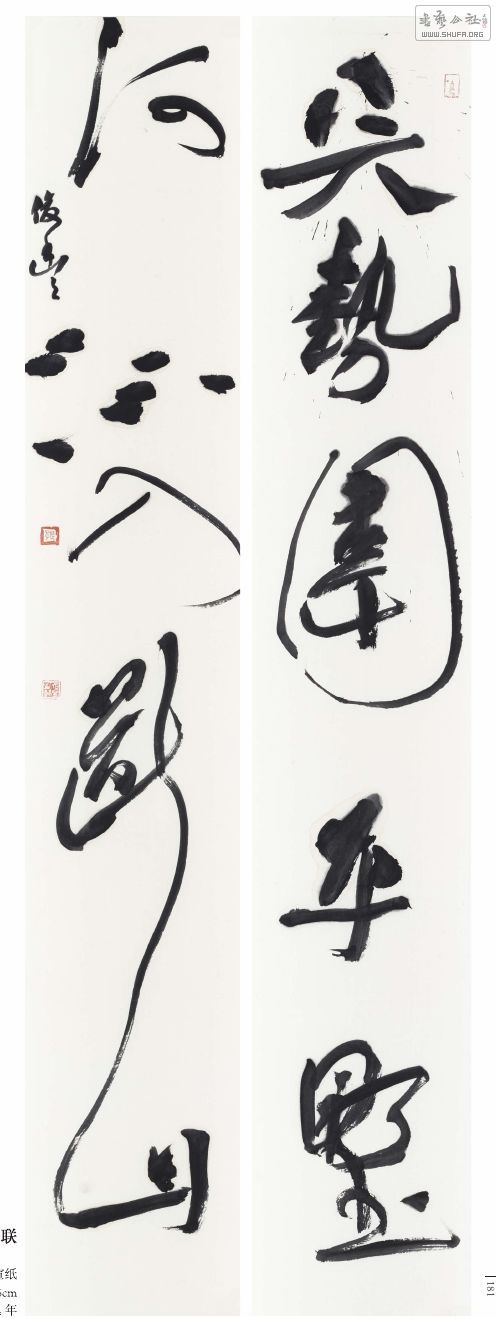 天势围平野
河流入断山
联
宣纸
cm
年
181
书艺公社
WWW.SHUFA.ORG